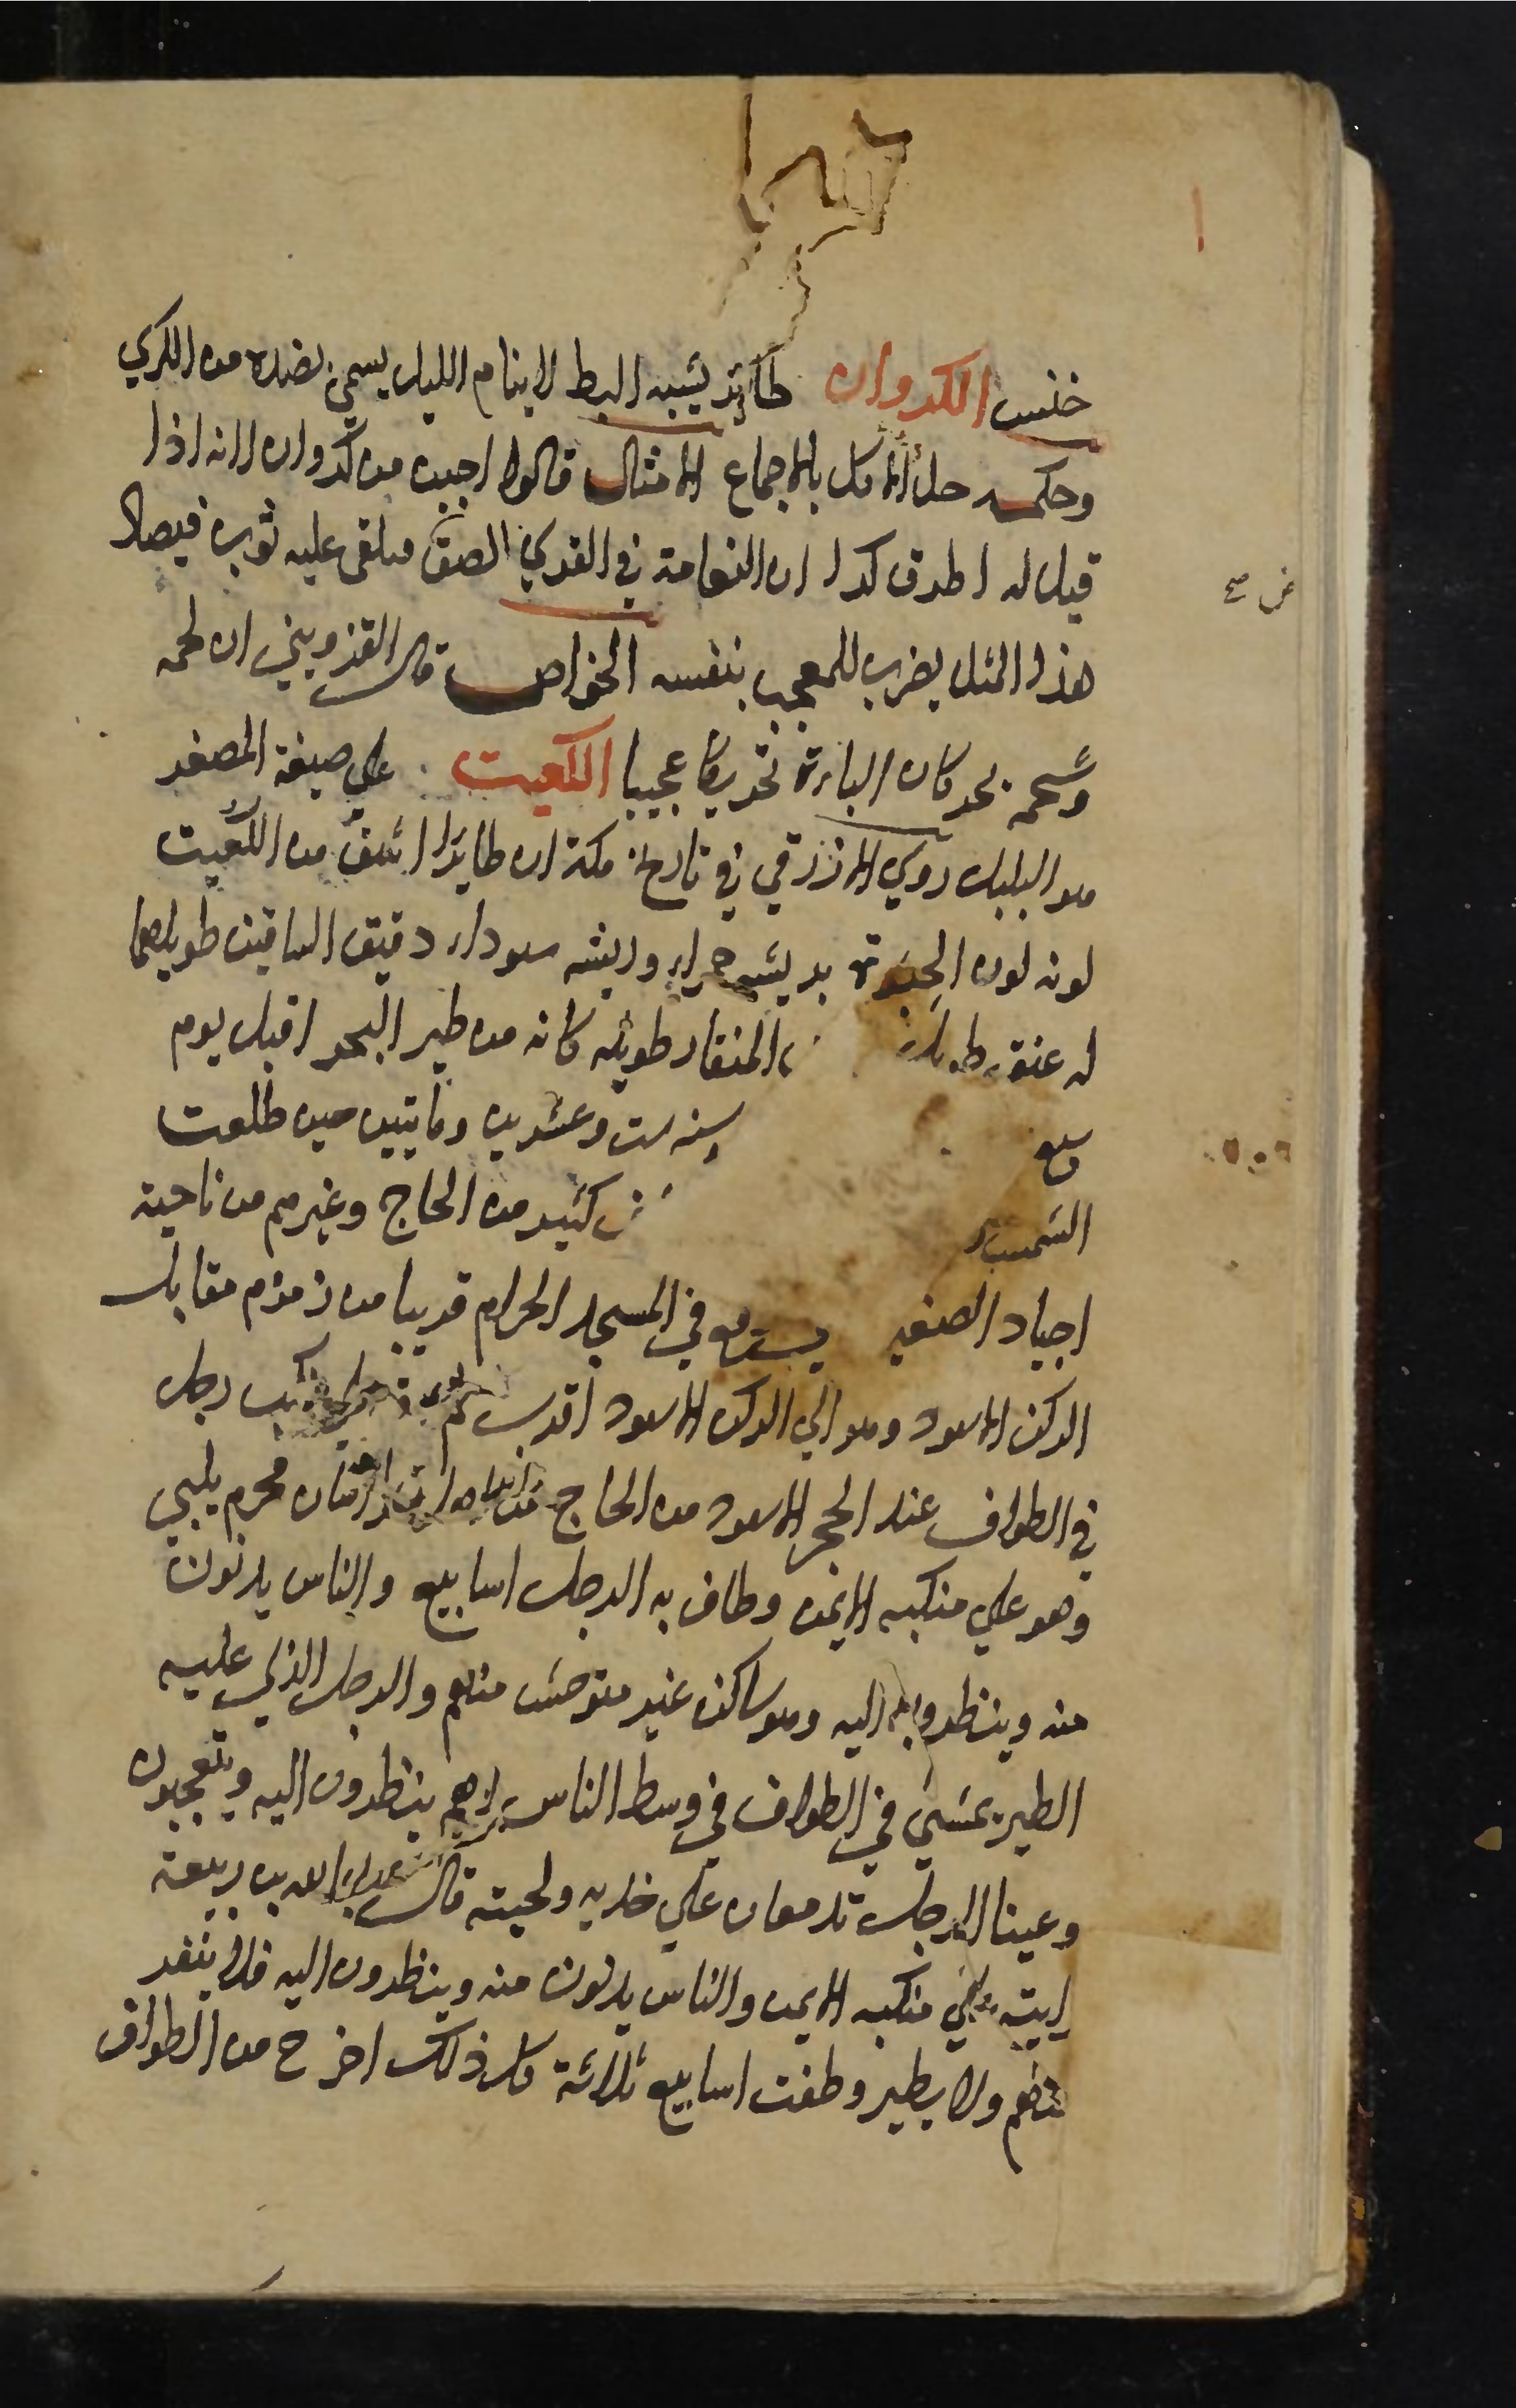 خنس الكروان طائر يشبه البط لا ينام الليل يسمي بضده من الكري
وحكمه حل الاكل بالاجماع الامثال قالوا اجبن من كروان لانه اذا
قيل له اطرق كرا ان النعامة في القري التصق فيلقى عليه ثوب فيصاد
هذا المثل يضرب للمعجب بنفسه الخواص قال القزويني ان لحمه
وشحمه يحركان الباءة تحريكا عجيبا الكعيت علي صيغة المصغر
هو البلبل روي الازرقي في تاريخ مكة ان طايرا اشف من الكعيت
لونه لون الحبرة بريشه حمراء وريشه سوداء دقيق الساقين طويلهما
له عنق طويلة المنقار طويله كانه من طير البحر اقبل يوم
سنه ست وعشرين ومايتين حين طلعت
الشمس كثير من الحاج وغيرهم من ناحية
اجياد الصغير حتي وقع في المسجد الحرام قريبا من زمزم مقابل
الركن الاسود وهو الي الركن الاسود اقرب ثم منكب رجل
في الطواف عند الحجر الاسود من الحاج من اهل خراسان محرم يلبي
وهو علي منكبه الايمن وطاف به الرجل اسابيع والناس يدنون
منه وينظرون اليه وهو ساكن غير متوحش منهم والرجل الذي عليه
الطير يمشي في الطواف في وسط الناس وهم ينظرون اليه ويتعجبون
وعينا الرجل تدمعان علي خديه ولحيته قال عبد الله بن ربيعة
رايته علي منكبه الايمن والناس يدنون منه وينظرون اليه فلا ينفر
منهم ولا يطير وطفت اسابيع ثلاثة كل ذلك اخرج من الطواف